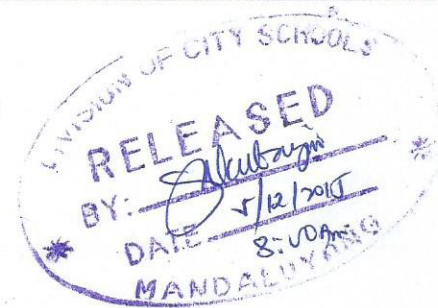 DIVISION OF CITY SCHOOLS
RELEASED
BY:
DATE 5/12/2015
8:00 Am
MANDALUYONG